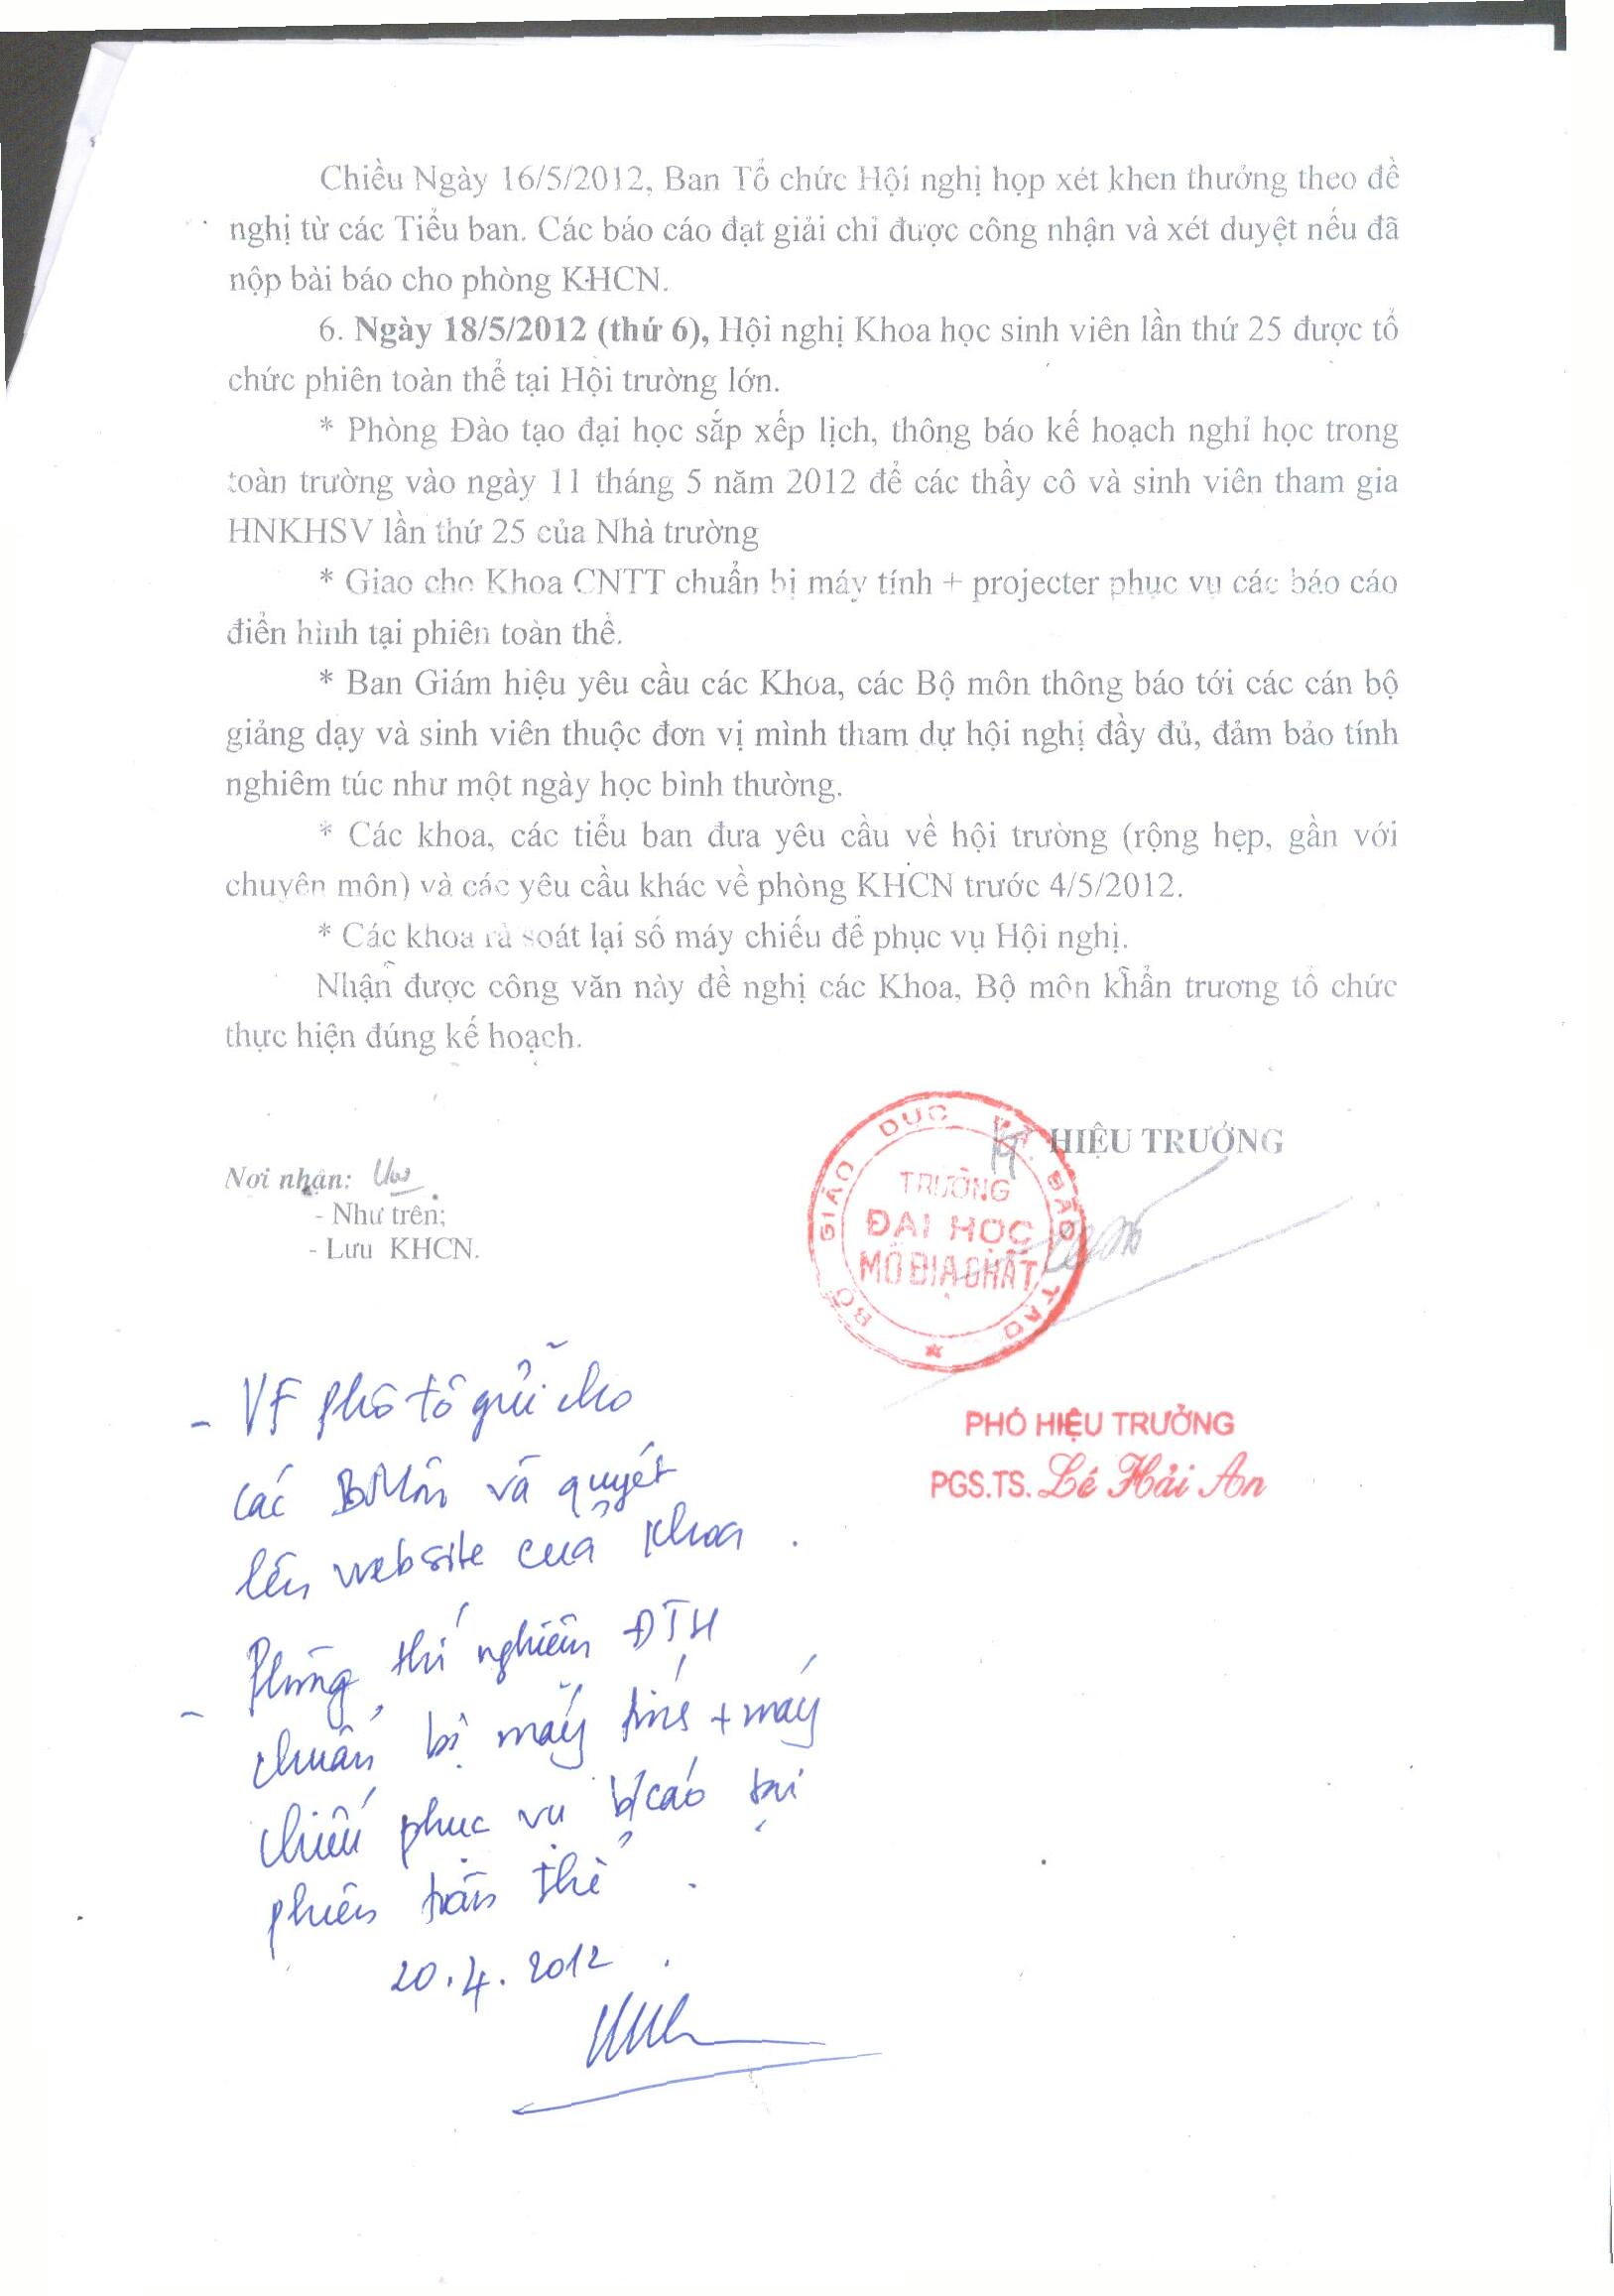 Chiều Ngày 16/5/2012, Ban Tổ chức Hội nghị họp xét khen thưởng theo đề
nghị từ các Tiểu ban. Các báo cáo đạt giải chỉ được công nhận và xét duyệt nếu đã
nộp bài báo cho phòng KHCN.
6. Ngày 18/5/2012 (thứ 6), Hội nghị Khoa học sinh viên lần thứ 25 được tổ
chức phiên toàn thể tại Hội trường lớn.
* Phòng Đào tạo đại học sắp xếp lịch, thông báo kế hoạch nghỉ học trong
toàn trường vào ngày 11 tháng 5 năm 2012 để các thầy cô và sinh viên tham gia
HNKHSV lần thứ 25 của Nhà trường
* Giao cho Khoa CNTT chuẩn bị máy tính + projecter phục vụ các báo cáo
điển hình tại phiên toàn thể.
* Ban Giám hiệu yêu cầu các Khoa, các Bộ môn thông báo tới các cán bộ
giảng dạy và sinh viên thuộc đơn vị mình tham dự hội nghị đầy đủ, đảm bảo tính
nghiêm túc như một ngày học bình thường.
* Các khoa, các tiểu ban đưa yêu cầu về hội trường (rộng hẹp, gần với
chuyên môn) và các yêu cầu khác về phòng KHCN trước 4/5/2012.
* Các khoa rà soát lại số máy chiếu để phục vụ Hội nghị.
Nhận được công văn này đề nghị các Khoa, Bộ môn khẩn trương tổ chức
thực hiện đúng kế hoạch.
KT. HIỆU TRƯỞNG
Nơi nhận:
- Như trên;
- Lưu KHCN.
BỘ GIÁO DỤC VÀ ĐÀO TẠO
TRƯỜNG
ĐẠI HỌC
MỎ ĐỊA CHẤT
PHÓ HIỆU TRƯỞNG
PGS.TS. Lê Hải An
- VF phô tô gửi cho
các BMôn và quyét
lên website của Khoa.
- Phòng thí nghiệm ĐTH
chuẩn bị máy tính + máy
chiếu phục vụ b/cáo tại
phiên toàn thể.
20.4.2012.